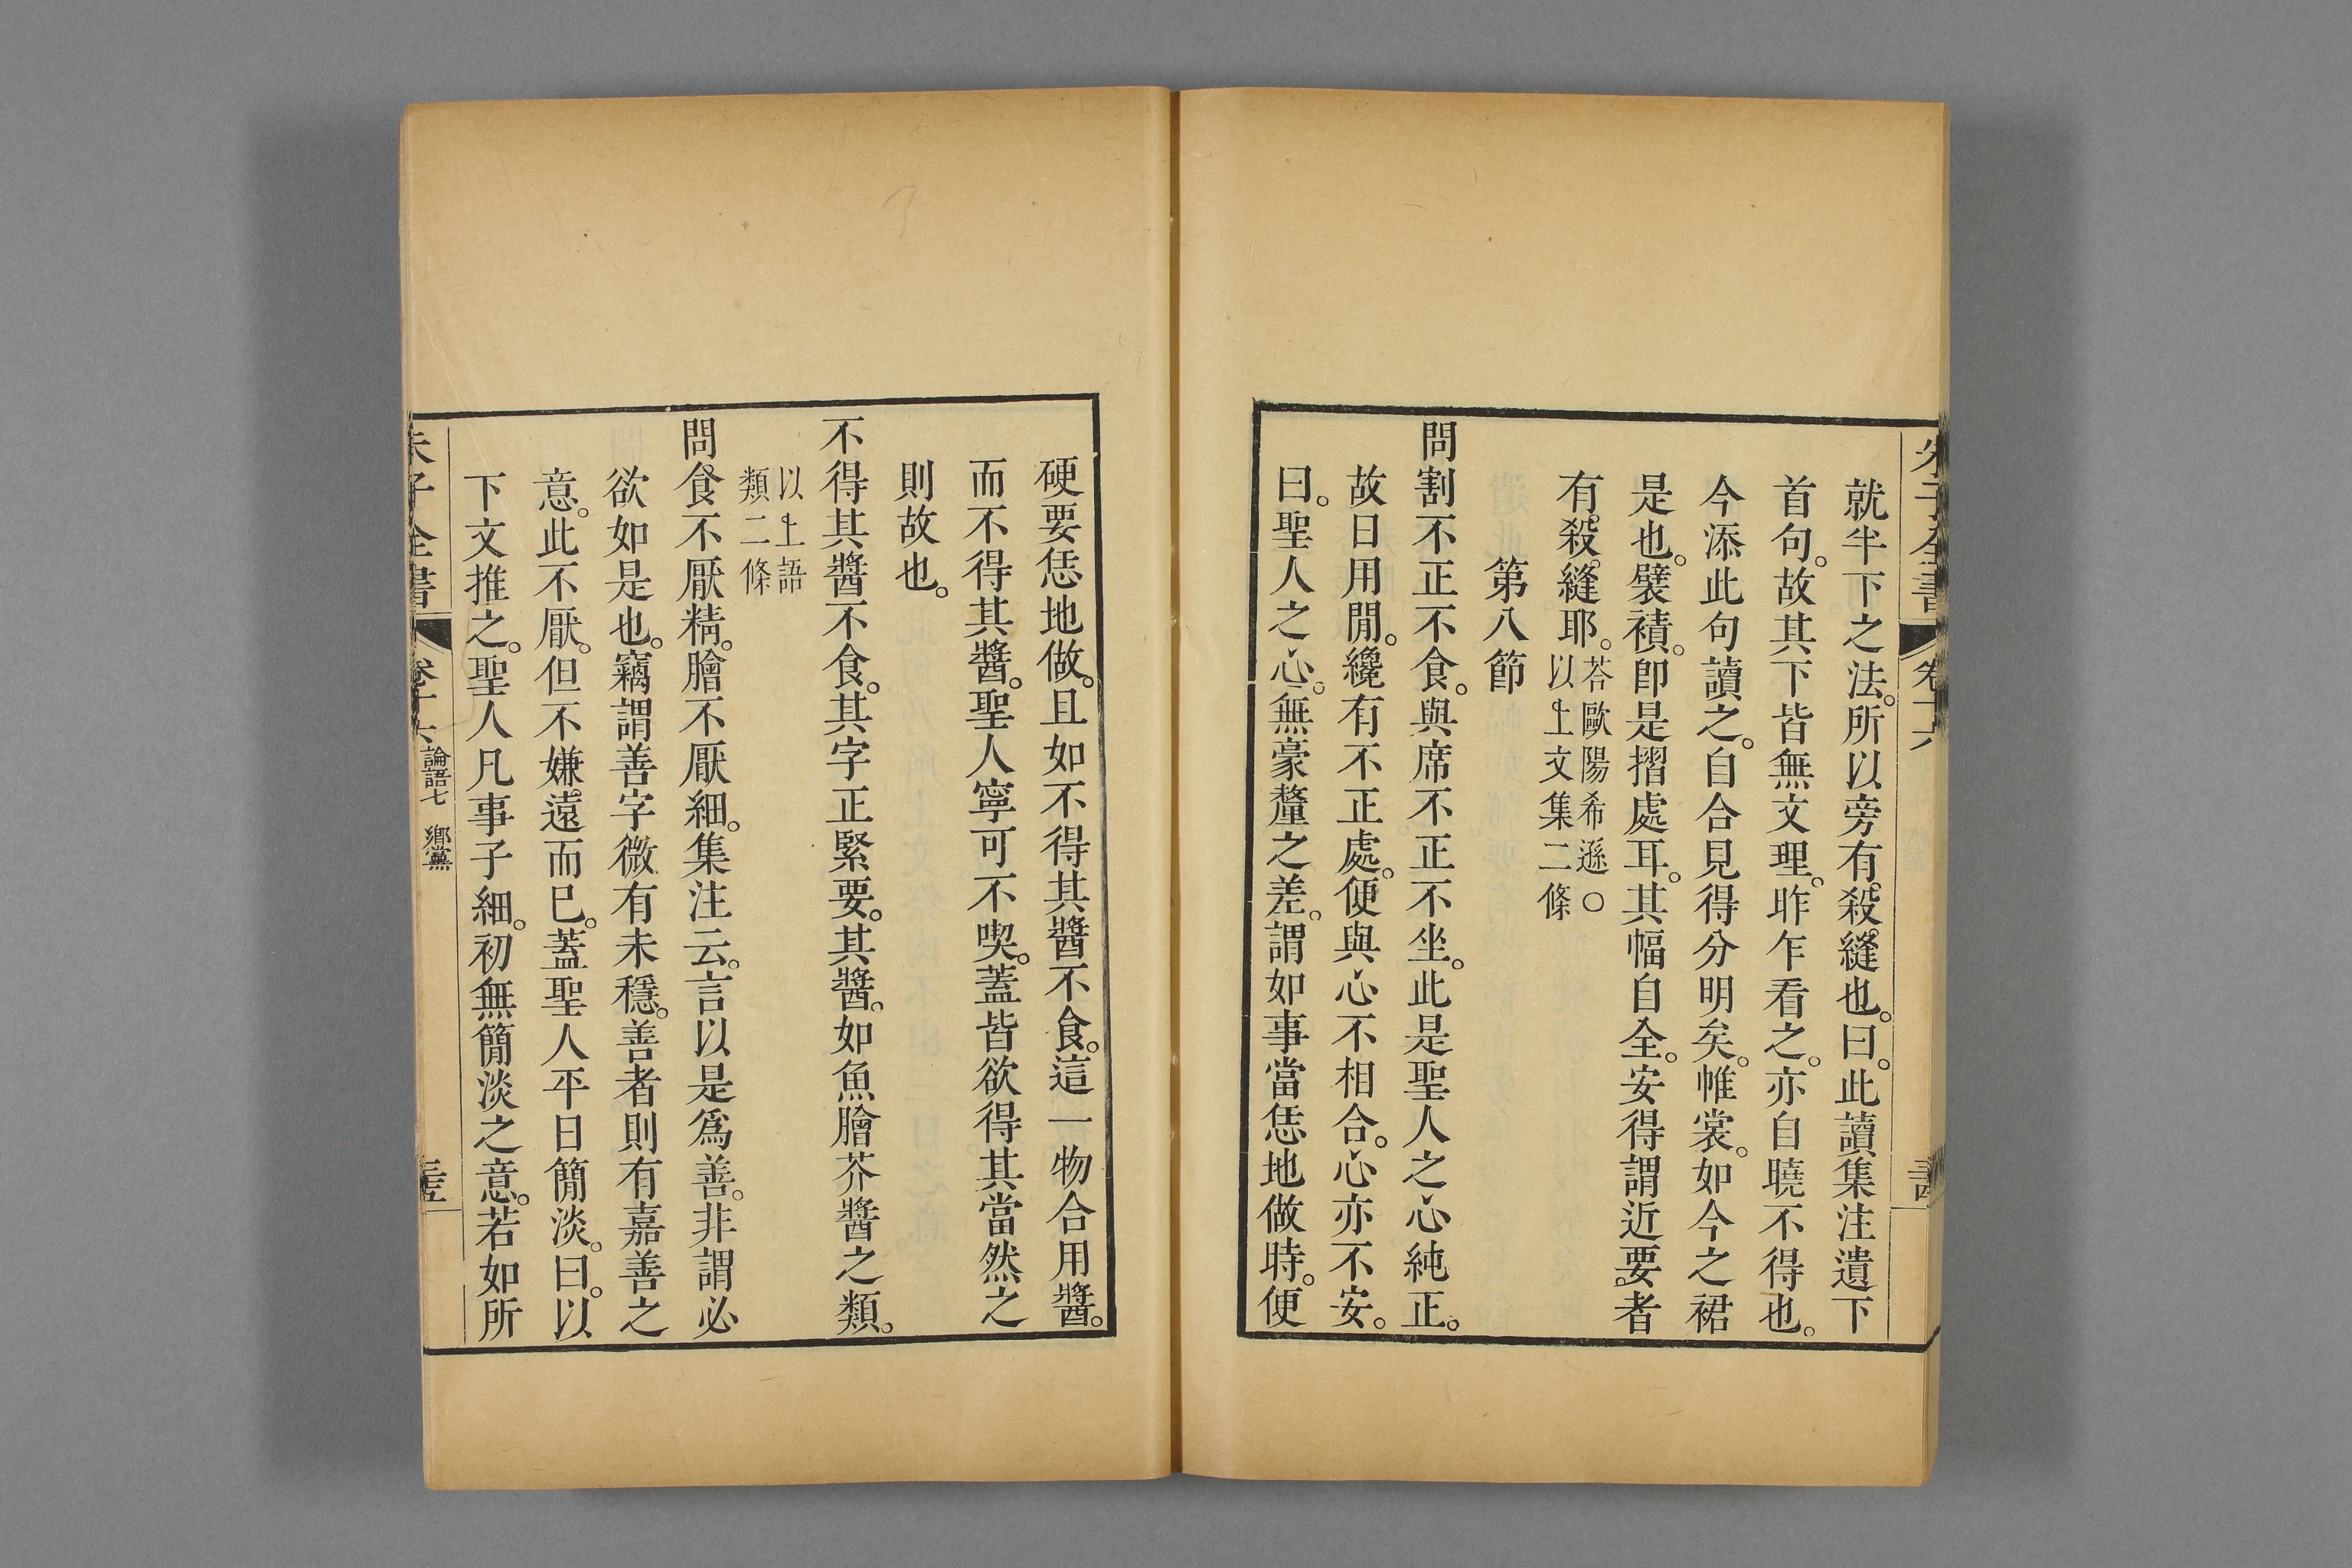 朱子全書 卷十六
就半下之法。所以旁有殺縫也。曰。此讀集注遺下
首句。故其下皆無文理。昨乍看之。亦自曉不得也。
今添此句讀之。自合見得分明矣。帷裳。如今之裙
是也。襞積。卽是摺處耳。其幅自全。安得謂近要者
有殺縫耶。答歐陽希遜○
以上文集二條
第八節
問割不正不食。與席不正不坐。此是聖人之心純正。
故日用閒。纔有不正處。便與心不相合。心亦不安。
曰。聖人之心。無豪釐之差。謂如事當恁地做時。便
硬要恁地做。且如不得其醬不食。這一物合用醬。
而不得其醬。聖人寧可不喫。蓋皆欲得其當然之
則故也。
不得其醬不食。其字正緊要。其醬。如魚膾芥醬之類。
以上語
類二條
問食不厭精。膾不厭細。集注云。言以是爲善。非謂必
欲如是也。竊謂善字微有未穩。善者則有嘉善之
意。此不厭。但不嫌遠而已。蓋聖人平日簡淡。曰。以
下文推之。聖人凡事子細。初無簡淡之意。若如所
朱子全書 卷十六 論語七 鄉黨